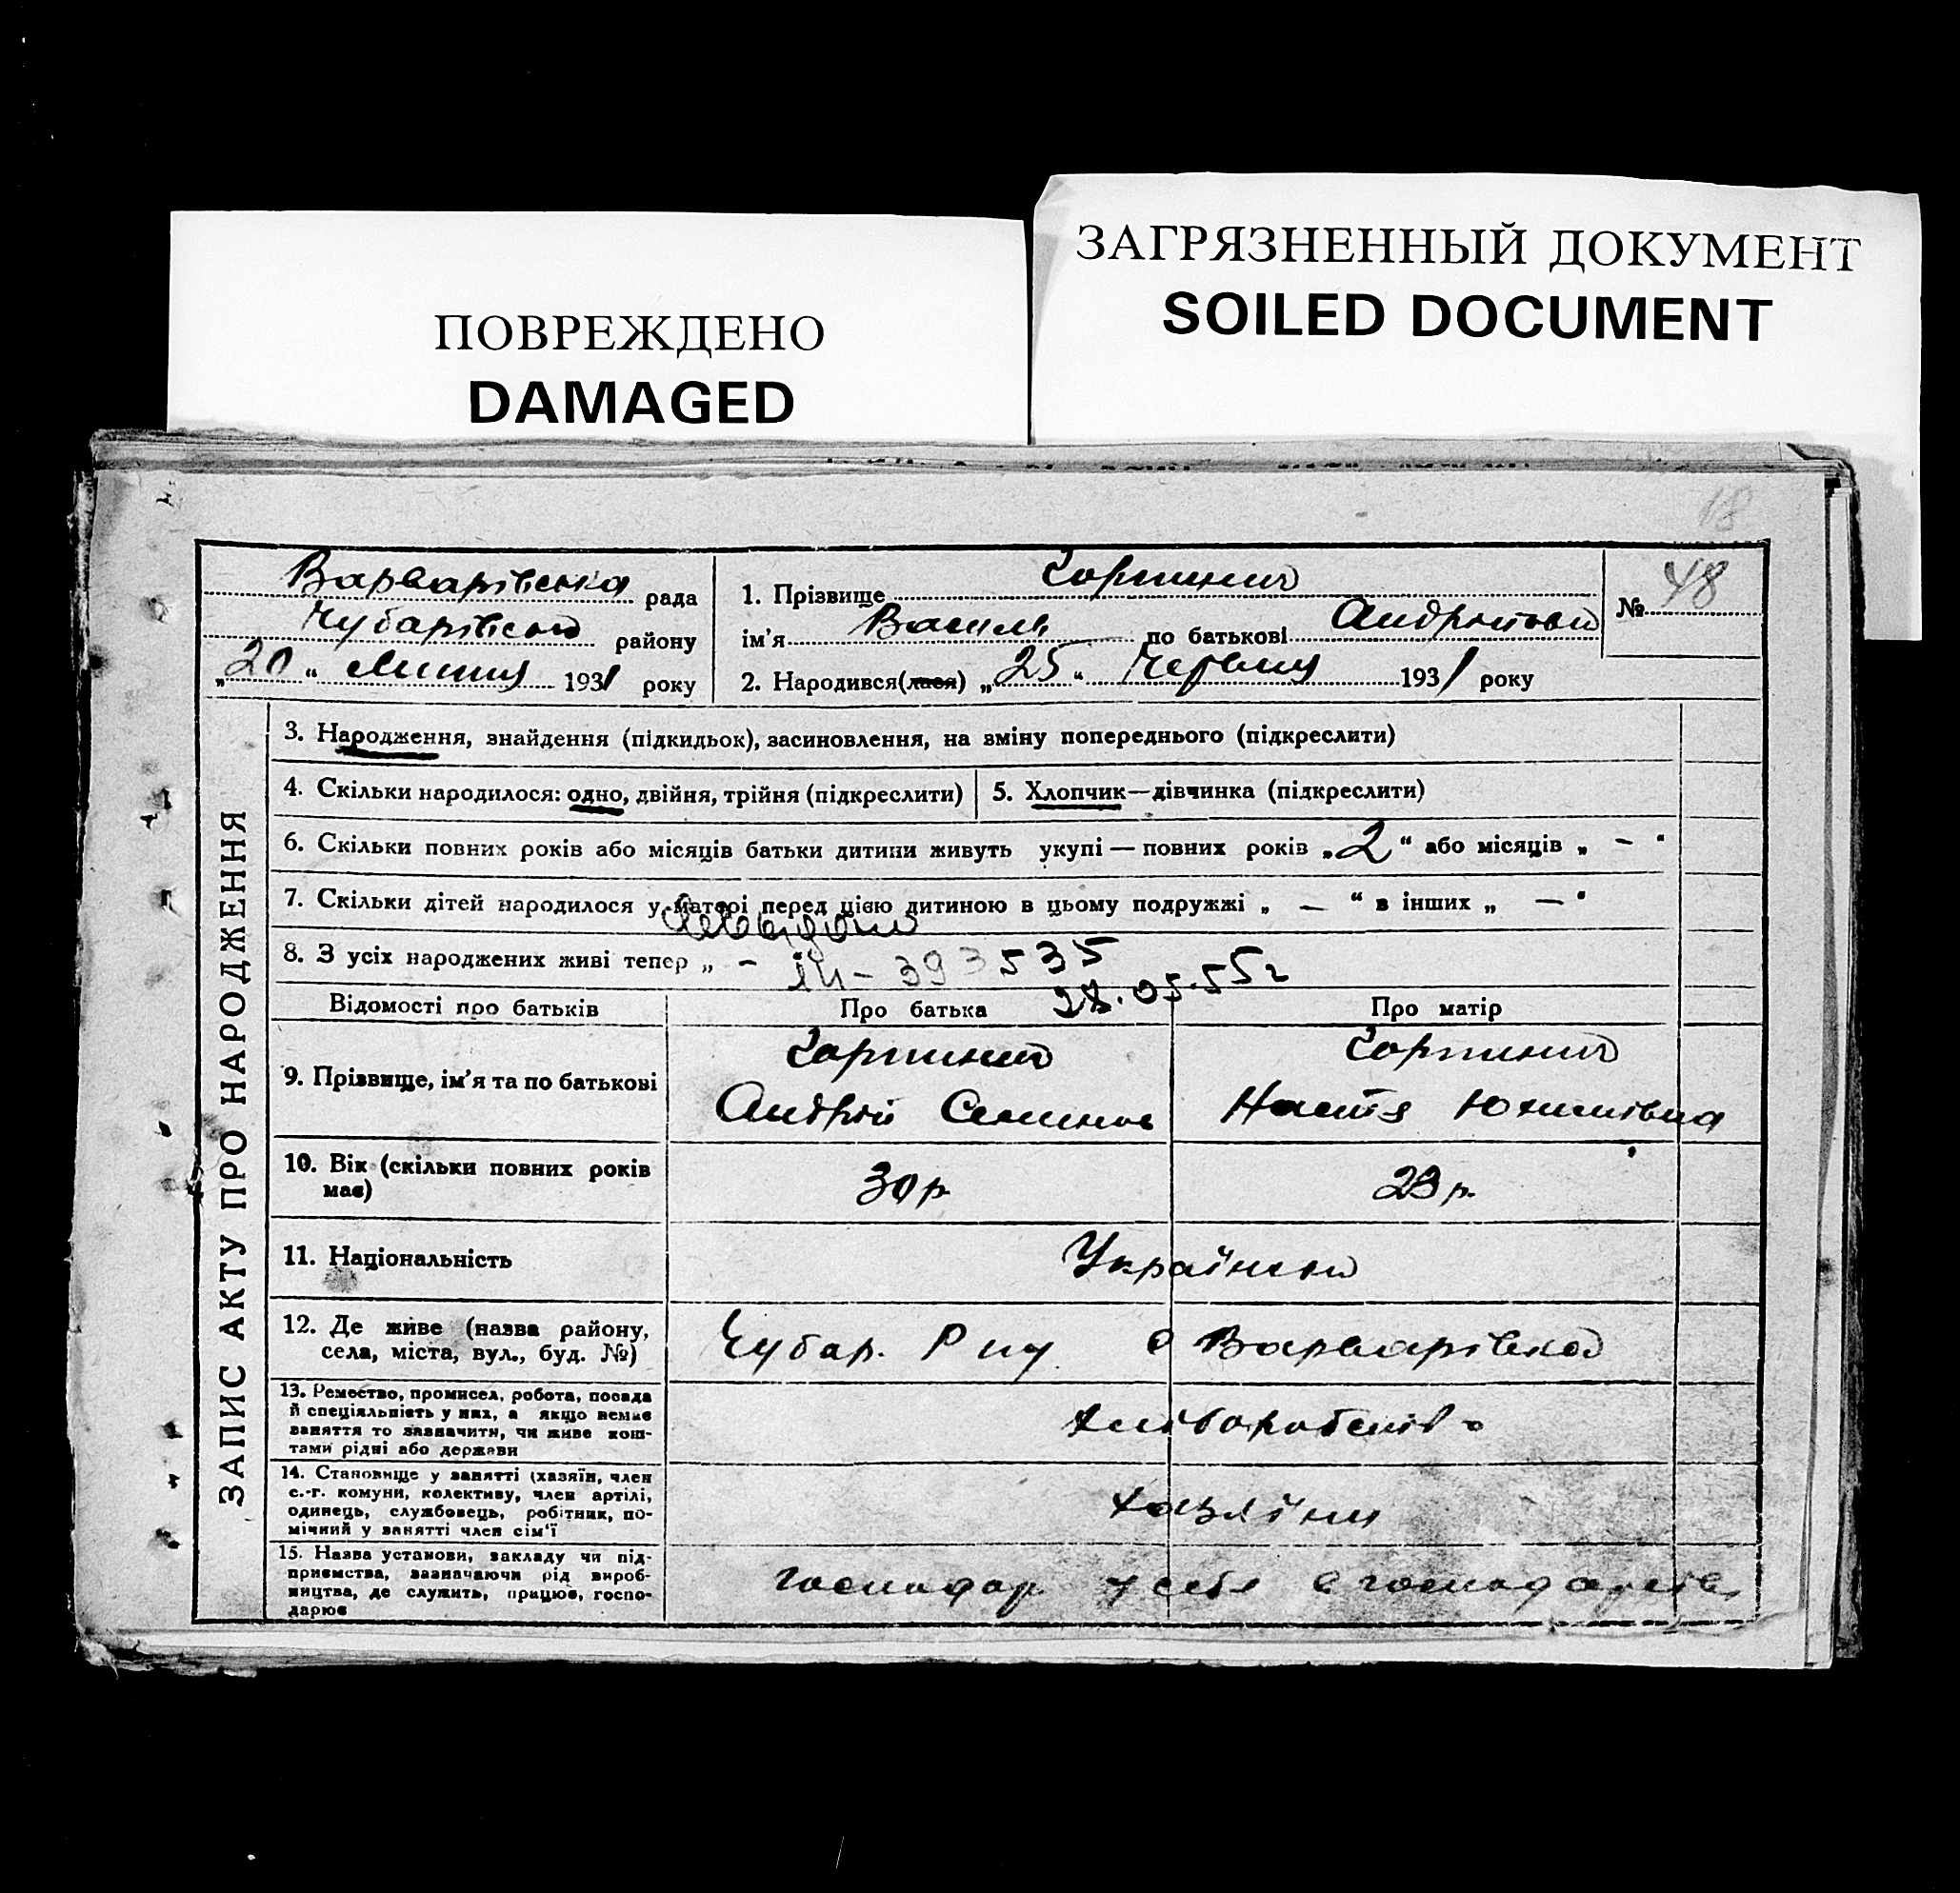 ПОВРЕЖДЕНО
DAMAGED
ЗАГРЯЗНЕННЫЙ ДОКУМЕНТ
SOILED DOCUMENT
18
Варварівська рада
Чубарівськ району
„20“ Липня 1931 року
1. Прізвище
ім'я Василь по батькові
2. Народився(лася) „25“ Червня 1931 року
№ 48
ЗАПИС АКТУ ПРО НАРОДЖЕННЯ
3. Народження, знайдення (підкидьок), засиновлення, на зміну попереднього (підкреслити)
4. Скільки народилося: одно, двійня, трійня (підкреслити)
5. Хлопчик—дівчинка (підкреслити)
6. Скільки повних років або місяців батьки дитини живуть укупі — повних років „2“ або місяців „ — “
7. Скільки дітей народилося у матері перед цією дитиною в цьому подружжі „ — “ в інших „ — “
8. З усіх народжених живі тепер „ —
393535
28.05.55г
Відомості про батьків
Про батька
Про матір
9. Прізвище, ім'я та по батькові
Андрій
Настя Юхимівна
10. Вік (скільки повних років має)
30 р
23 р.
11. Національність
Українськ
12. Де живе (назва району, села, міста, вул., буд. №)
Чубар. Р ну с Варварівка
13. Ремество, промисел, робота, посада
й спеціяльність у них, а якщо немає
заняття то зазначити, чи живе кош-
тами рідні або держави
хліборобство
14. Становище у занятті (хазяїн, член
с.-г. комуни, колективу, член артілі,
одинець, службовець, робітник, по-
мічний у занятті член сім'ї
хазяїни
15. Назва установи, закладу чи під-
приємства, зазначаючи рід вироб-
ництва, де служить, працює, госпо-
дарює
господар у себе в господарстві